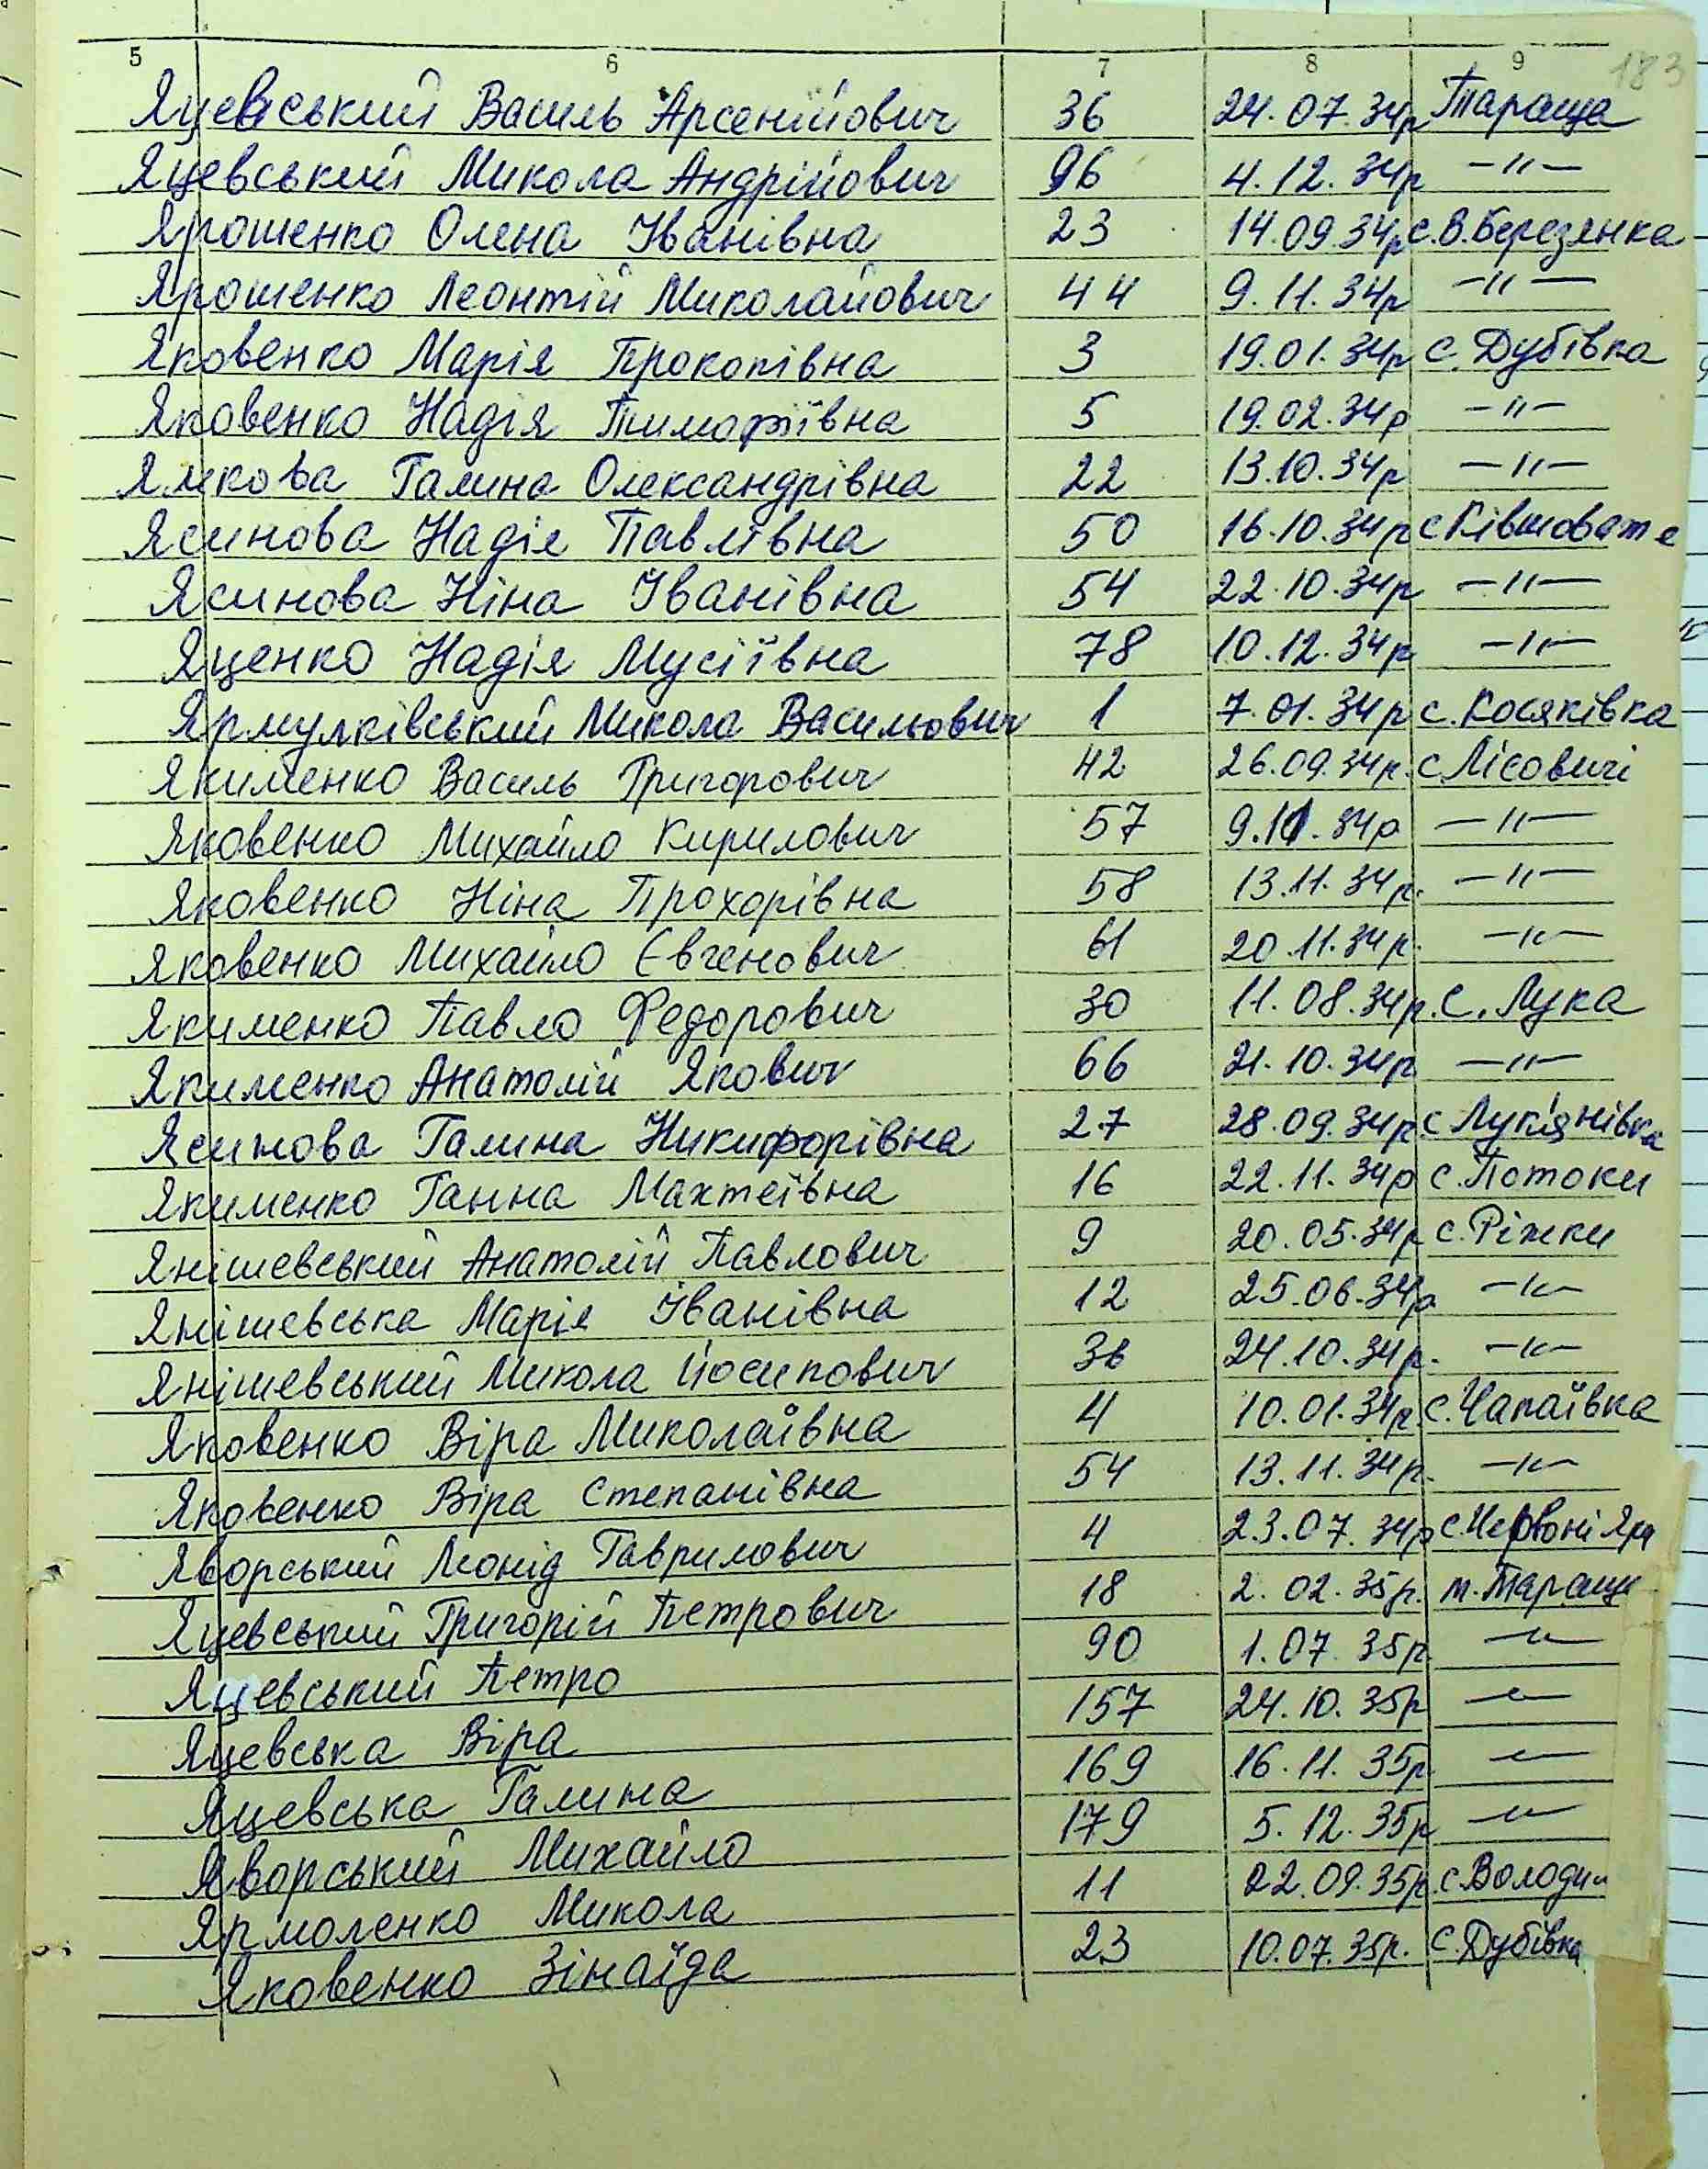 5 6 7 8 9 183
Яцевський Василь Арсенійович 36 24.07.34р Тараща
Яцевський Микола Андрійович 96 4.12.34р —"—
Ярошенко Олена Іванівна 23 14.09.34р с.В.Березянка
Ярошенко Леонтій Миколайович 44 9.11.34р —"—
Яковенко Марія Прокопівна 3 19.01.34р с.Дубівка
Яковенко Надія Тимофіївна 5 19.02.34р —"—
Галина Олександрівна 22 13.10.34р —"—
Ясинова Надія Павлівна 50 16.10.34р с Ківшовате
Ясинова Ніна Іванівна 54 22.10.34р —"—
Яценко Надія Мусіївна 78 10.12.34р —"—
Ярмулківський Микола Васильович 1 7.01.34р с.Косяківка
Якименко Василь Григорович 42 26.09.34р. с Лісовичі
Яковенко Михайло Кирилович 57 9.11.34р —"—
Яковенко Ніна Прохорівна 58 13.11.34р. —"—
Яковенко Михайло Євгенович 61 20.11.34р. —"—
Якименко Павло Федорович 30 11.08.34р. с. Лука
Якименко Анатолій Якович 66 21.10.34р —"—
Ясинова Галина Никифорівна 27 28.09.34р. с Лук'янівка
Якименко Ганна Махтеївна 16 22.11.34р с.Потоки
Янішевський Анатолій Павлович 9 20.05.34р с.Ріжки
Янішевська Марія Іванівна 12 25.06.34р —"—
Янішевський Микола Йосипович 36 24.10.34р. —"—
Яковенко Віра Миколаївна 4 10.01.34р. с.Чапаївка
Яковенко Віра Степанівна 54 13.11.34р. —"—
Яворський Леонід Гаврилович 4 23.07.34р с.Червоні Яри
Яцевський Григорій Петрович 18 2.02.35р. м.Тараща
Яцевський Петро 90 1.07.35р —"—
Яцевська Віра 157 24.10.35р —"—
Яцевська Галина 169 16.11.35р —"—
Яворський Михайло 179 5.12.35р —"—
Ярмоленко Микола 11 22.09.35р. с.Володи
Яковенко Зінаїда 23 10.07.35р. с.Дубівка